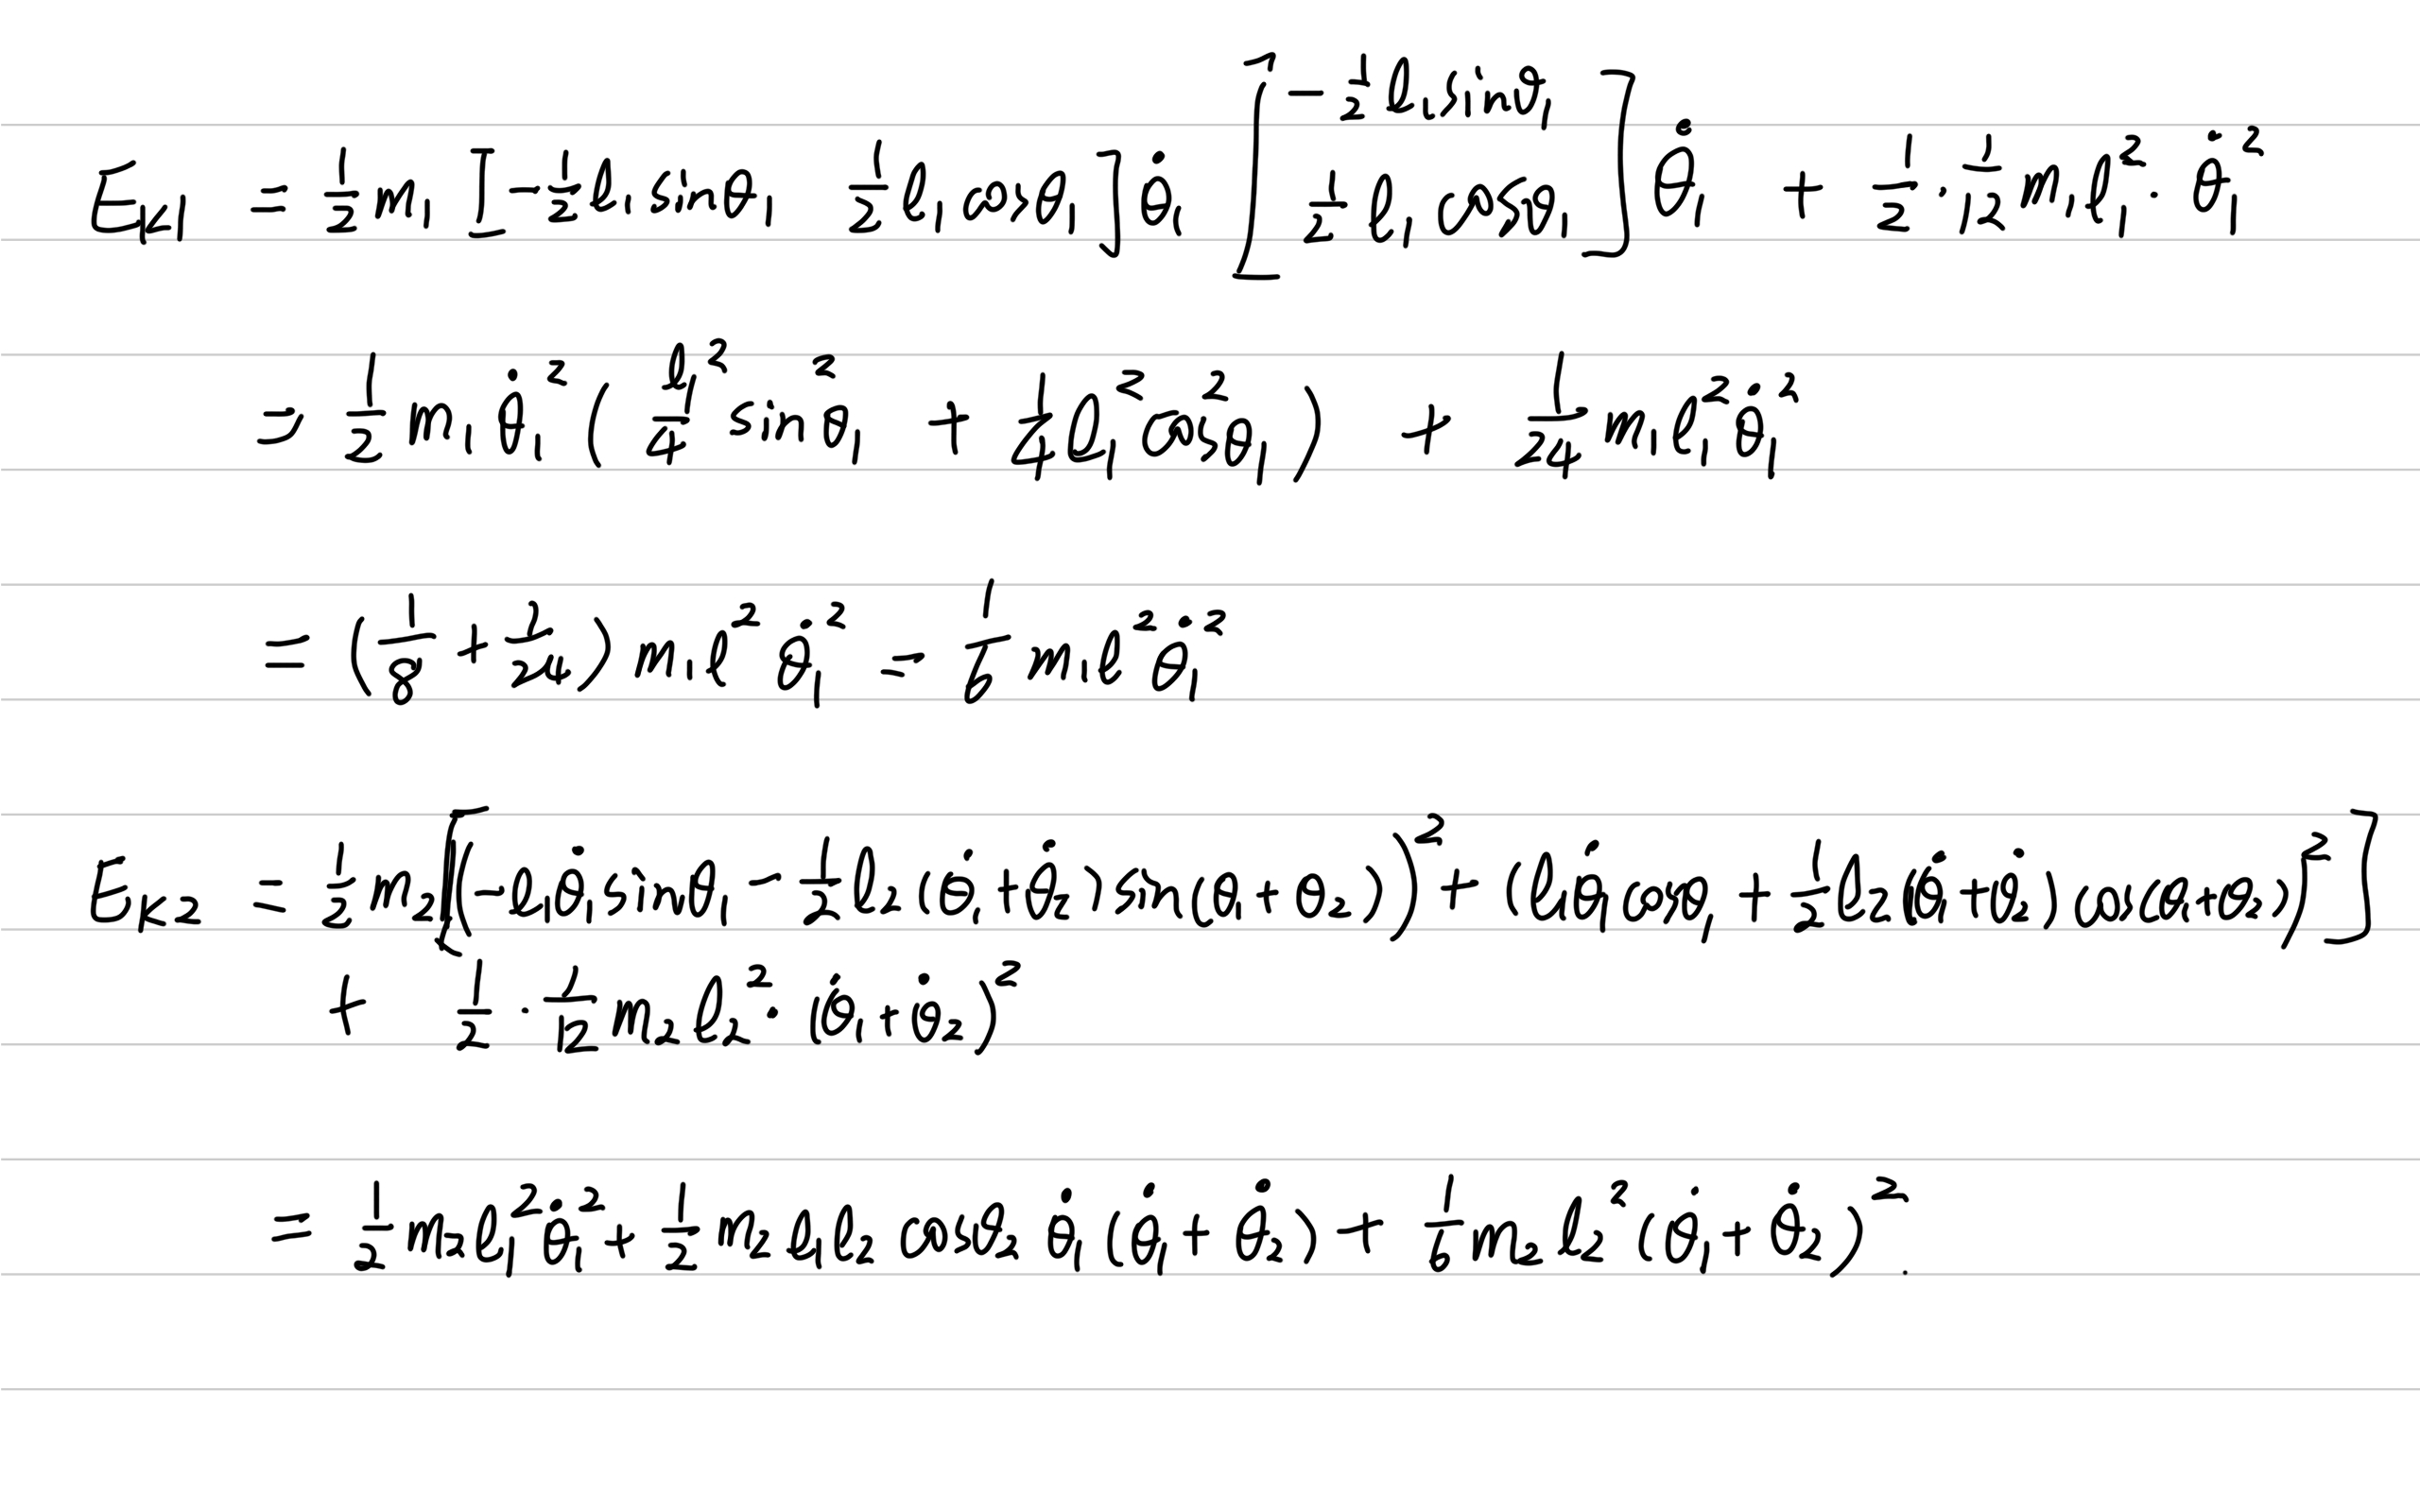 E_{K1} = \frac{1}{2} m_1 [-\frac{1}{2} l_1 sinθ_1 \quad \frac{1}{2} l_1 cosθ_1] \dot{θ}_1 \begin{bmatrix} -\frac{1}{2} l_1 sinθ_1 \\ \frac{1}{2} l_1 cosθ_1 \end{bmatrix} \dot{θ}_1 + \frac{1}{2} · \frac{1}{12} m_1 l_1^2 · \dot{θ}_1^2
= \frac{1}{2} m_1 \dot{θ}_1^2 ( \frac{l_1^2}{4} sin^2 θ_1 + \frac{1}{4} l_1^2 cos^2 θ_1 ) + \frac{1}{24} m_1 l_1^2 \dot{θ}_1^2
= ( \frac{1}{8} + \frac{1}{24} ) m_1 l^2 \dot{θ}_1^2 = \frac{1}{6} m_1 l^2 \dot{θ}_1^2
E_{K2} = \frac{1}{2} m_2 [ (-l_1 \dot{θ}_1 sinθ_1 - \frac{1}{2} l_2 (\dot{θ}_1 + \dot{θ}_2) sin(θ_1 + θ_2))^2 + (l_1 \dot{θ}_1 cosθ_1 + \frac{1}{2} l_2 (\dot{θ}_1 + \dot{θ}_2) cos(θ_1 + θ_2))^2 ]
+ \frac{1}{2} · \frac{1}{12} m_2 l_2^2 · (\dot{θ}_1 + \dot{θ}_2)^2
= \frac{1}{2} m_2 l_1^2 \dot{θ}_1^2 + \frac{1}{2} m_2 l_1 l_2 cosθ_2 \dot{θ}_1 (\dot{θ}_1 + \dot{θ}_2) + \frac{1}{6} m_2 l_2^2 (\dot{θ}_1 + \dot{θ}_2)^2 .